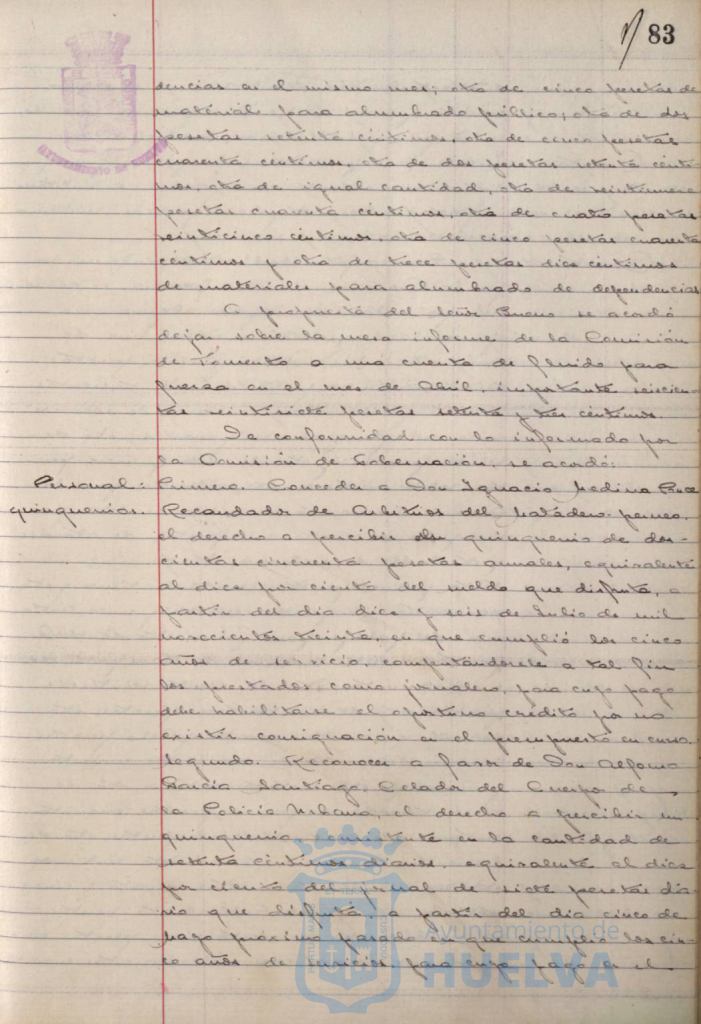 83
AYUNTAMIENTO DE
dencias en el mismo mes; otra de cinco pesetas de
material para alumbrado público, otra de dos
pesetas setenta céntimos, otra de cinco pesetas
cuarenta céntimos, otra de dos pesetas setenta cénti-
mos, otra de igual cantidad, otra de veintinueve
pesetas cuarenta céntimos, otra de cuatro pesetas
veinticinco céntimos, otra de cinco pesetas cuarenta
céntimos y otra de trece pesetas diez céntimos
de materiales para alumbrado de dependencias
A propuesta del señor Bueno se acordó
dejar sobre la mesa informe de la Comisión
de Fomento a una cuenta de fluido para
fuerza en el mes de Abril, importante seiscien-
tas veintisiete pesetas setenta y tres céntimos.
De conformidad con lo informado por
la Comisión de Gobernación, se acordó:
Personal:
quinquenios.
Primero. Conceder a Don Ignacio Medina Ponce
Recaudador de Arbitrios del Matadero
el derecho a percibir quinquenio de dos-
cientas cincuenta pesetas anuales, equivalente
al diez por ciento del sueldo que disfruta, a
partir del día diez y seis de Julio de mil
novecientos treinta, en que cumplió los cinco
años de servicio, computándosele a tal fin
los prestados como jornalero, para cuyo pago
debe habilitarse el oportuno crédito por no
existir consignación en el presupuesto en curso.
Segundo. Reconocer a favor de Don Alfonso
García Santiago, Celador del Cuerpo de
la Policía Urbana, el derecho a percibir un
quinquenio, consistente en la cantidad de
setenta céntimos diarios, equivalente al diez
por ciento del jornal de siete pesetas dia-
rio que disfruta, a partir del día cinco de
Mayo próximo pasado en que cumplió los cin-
co años de servicios, para cuyo pago en el
Ayuntamiento de
HUELVA